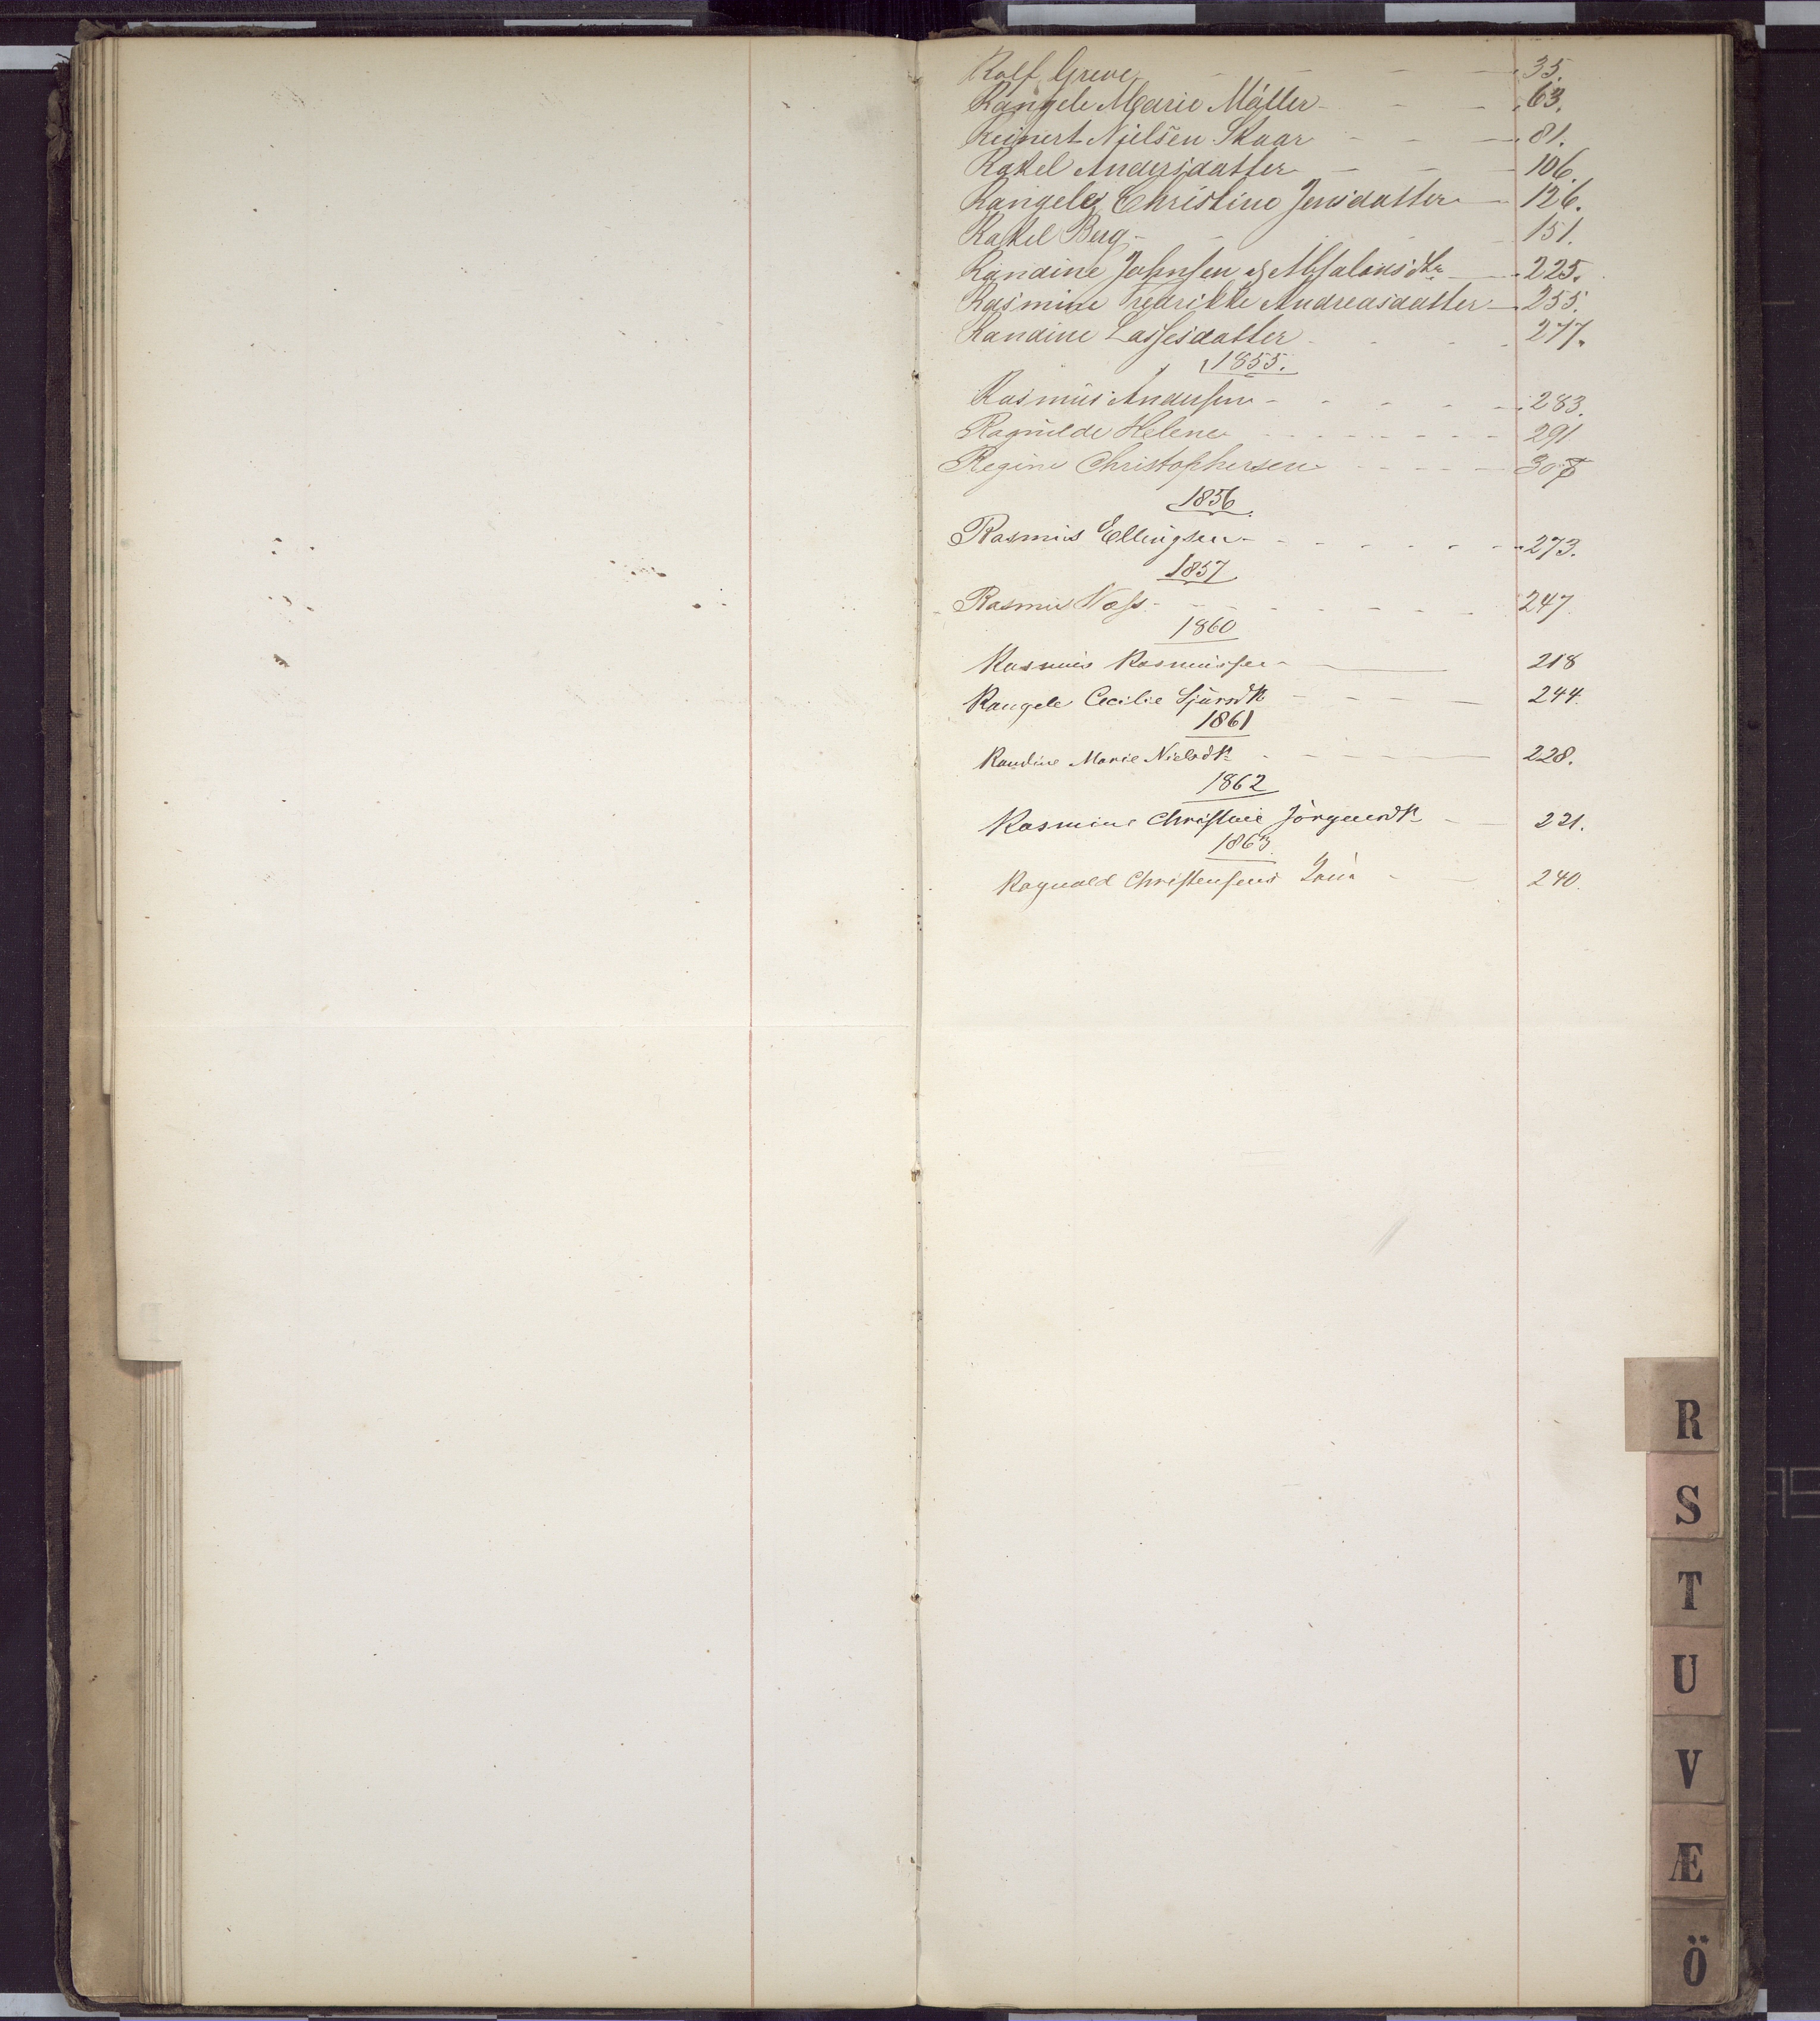 Rolf Greve - - - 35.
Rangele Marie Møller - - - 63.
Reinert Nielsen Skaar - - - 81.
Rakel Andersdatter - - - 106.
Rangele Christine Jensdatter - 126.
Rakel Berg - - - 151.
Randine Johnsen & Absalonsdtr - 225.
Rasmine Fredrikke Andreasdatter - 255.
Randine Lassesdatter - - - 277.
1855.
Rasmus Andersen - - - - - 283.
Ragnilde Helene - - - - - - - 291
Regine Christophersen - - - - 308
1856.
Rasmus Ellingsen - - - - - - - 273.
1857
Rasmus Næss - - - - - - - 247.
1860
Rasmus Rasmussen - 218
Rangele Cecilie Sjursdtr - - - - 244.
1861
Randine Marie Nielsdtr - - - - 228.
1862
Rasmine Christine Jörgensdtr - - 221.
1863.
Ragnvald Christensens - - 240.
R
S
T
U
V
Æ
Ö